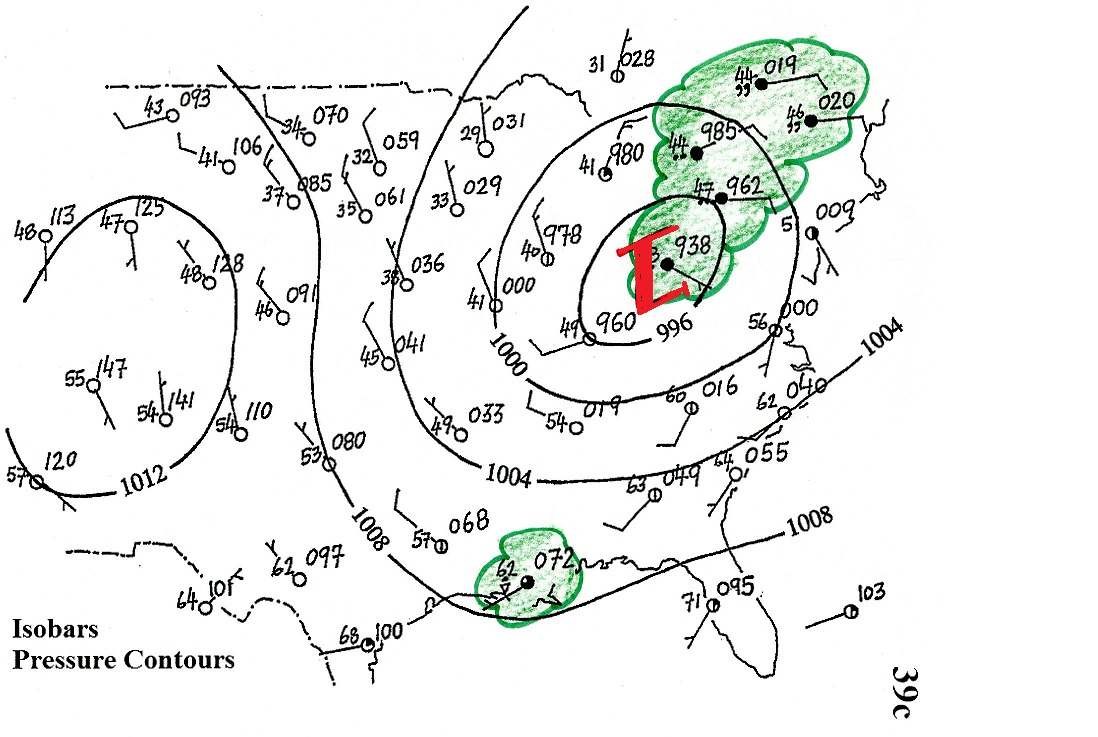 31 028
44 019
,,
43 093
34 070
46 020
,,
29 031
32 059
44 985
41 980
41 106
37 085
35 061
33 029
47 962
009
48 113
47 125
40 978
L
938
48 128
38 036
41 000
000
46 091
49 960
996
56
1004
45 041
1000
55 147
54 141
54 110
60 016
62 040
49 033
54 019
57 120
53 080
64 055
1012
1004
63 049
1008
1008
57 068
62 097
62 072
64 101
71 095
103
68 100
Isobars
Pressure Contours
39c